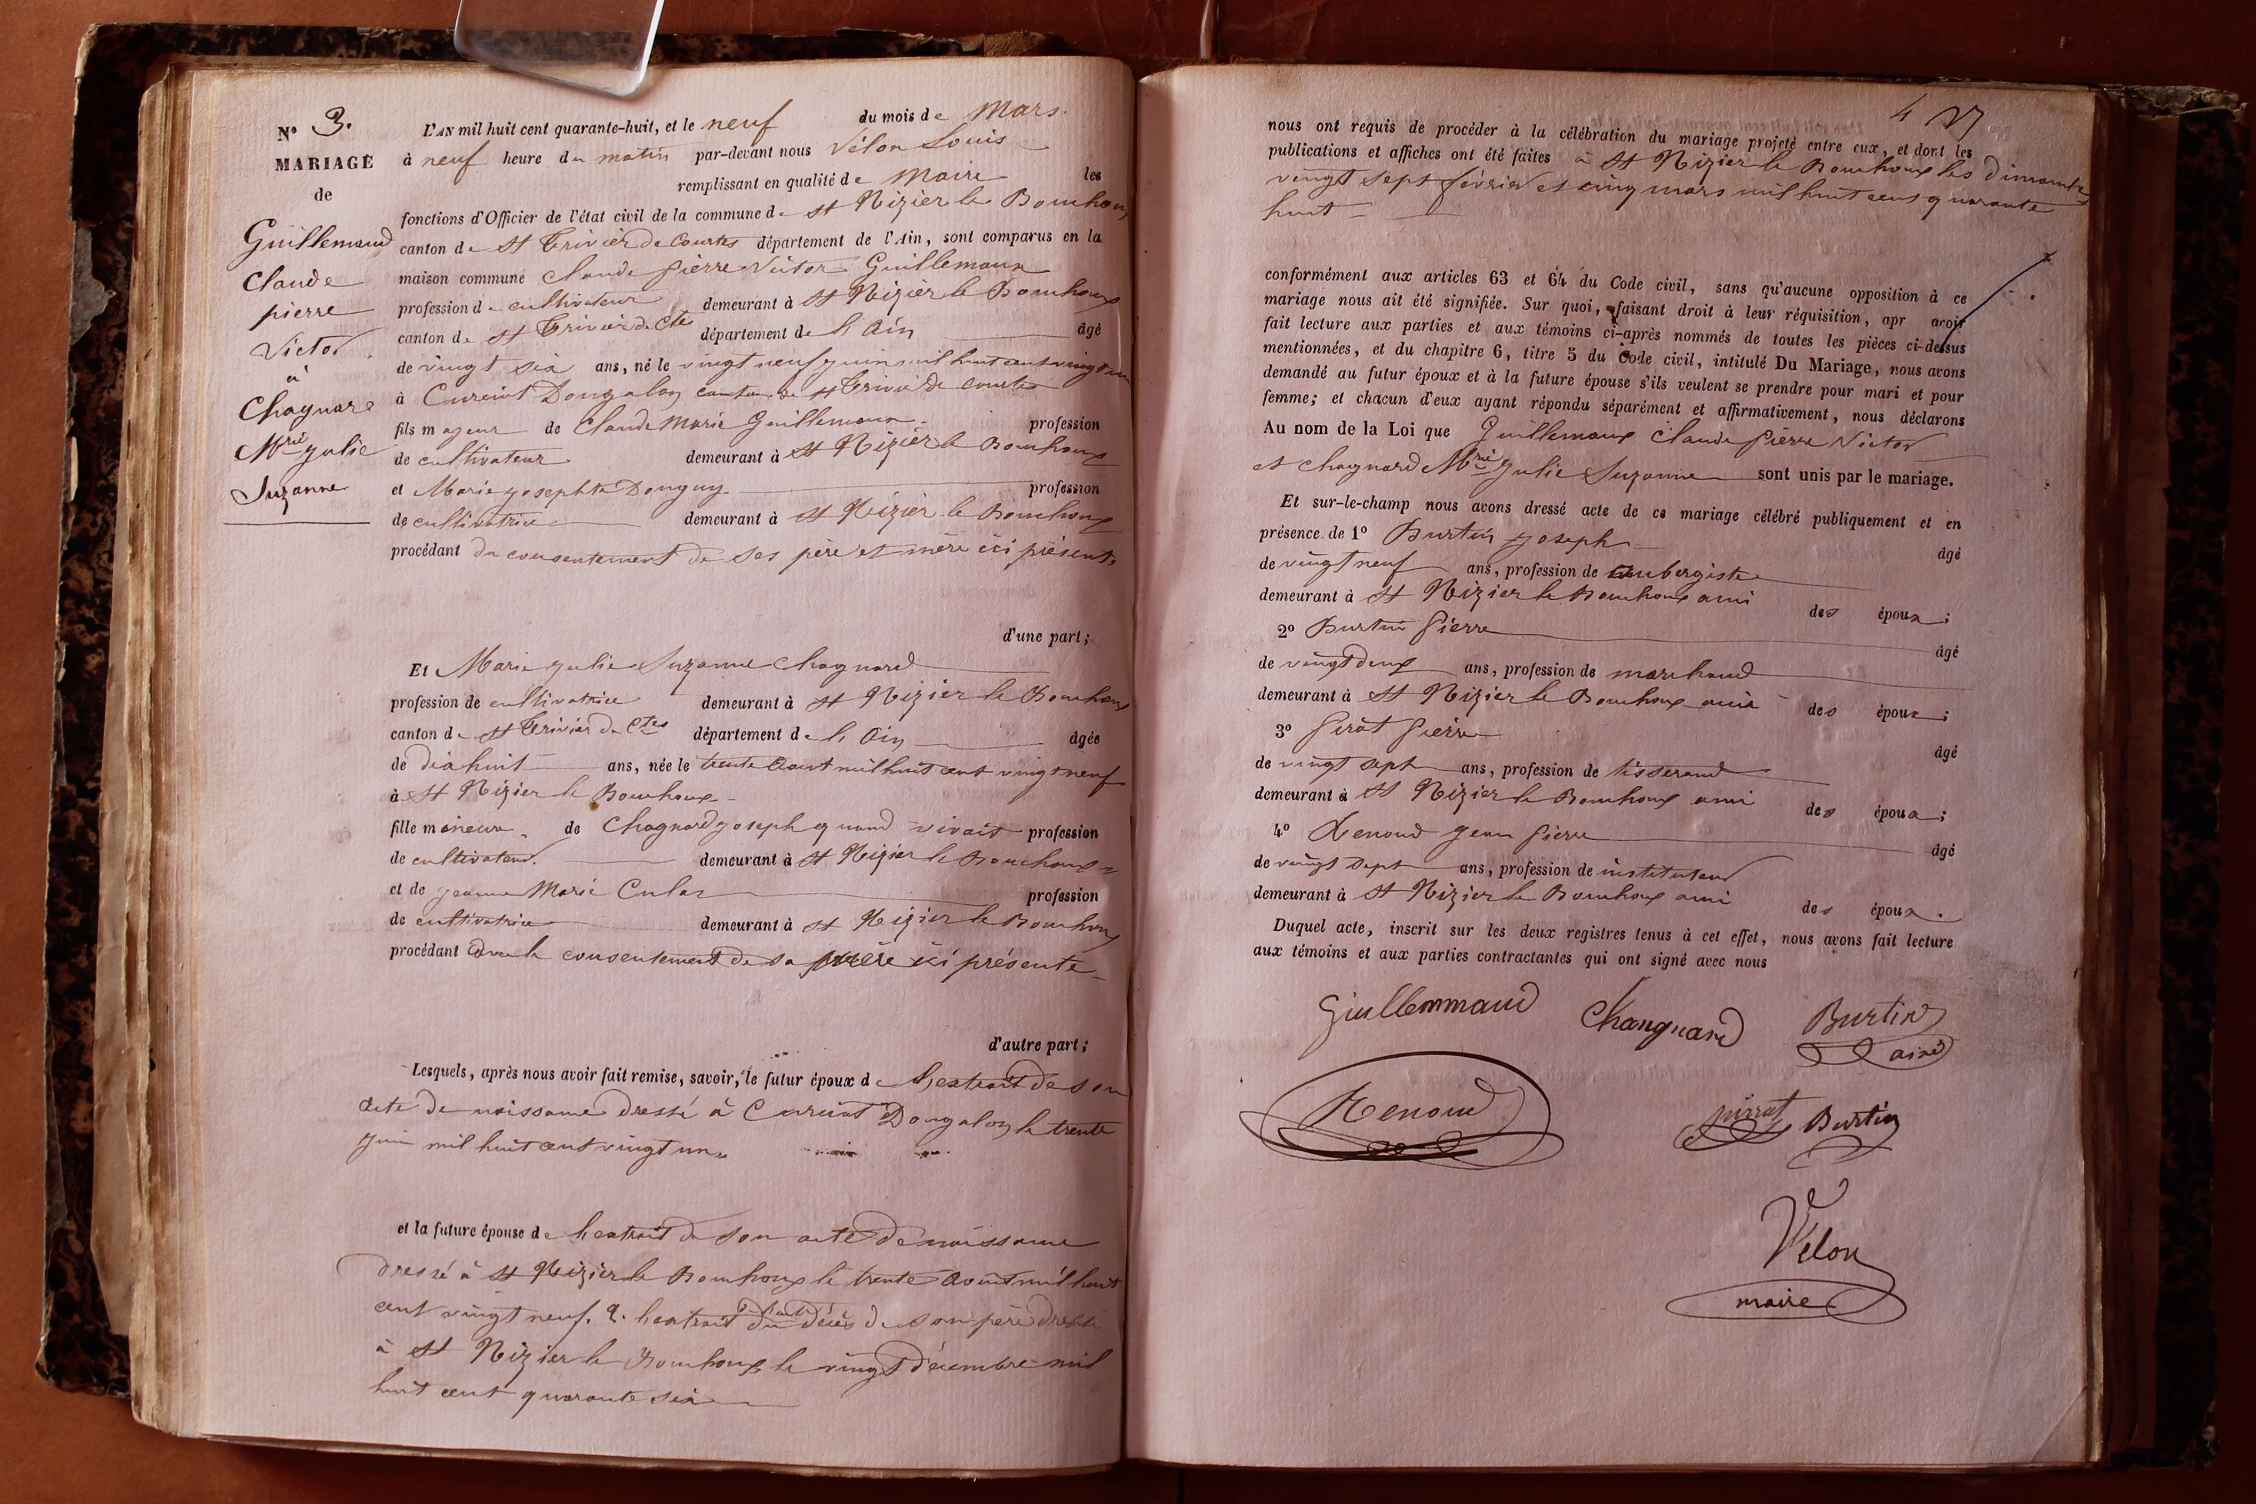 N° 3.
MARIAGE
de
Guillemaud
Claude
pierre
Victor
à
Chagnard
Mrie julie
Suzanne
L'AN mil huit cent quarante-huit, et le neuf du mois de Mars.
à neuf heure du matin par-devant nous Vélon Louis
remplissant en qualité de Maire les
fonctions d'Officier de l'état civil de la commune de St Nizier le Bouchoux
canton de St Trivier de Courtes département de l'Ain, sont comparus en la
maison commune Claude pierre Victor Guillemaud
profession de cultivateur demeurant à St Nizier le Bouchoux
canton de St Trivier de Ctes département de l'Ain âgé
de vingt six ans, né le vingt neuf juin mil huit cent vingt un
à Curciat Dongalon canton de St Trivier de Courtes
fils majeur de Claude Marie Guillemaud profession
de cultivateur demeurant à St Nizier le Bouchoux
et Marie josephte Donguy profession
de cultivatrice demeurant à St Nizier le Bouchoux
procédant du consentement de ses père et mère ici présents,
d'une part ;
Et Marie julie Suzanne Chagnard
profession de cultivatrice demeurant à St Nizier le Bouchoux
canton de St Trivier de Ctes département de l'Ain âgée
de dix huit ans, née le trente Aout mil huit cent vingt neuf
à St Nizier le Bouchoux
fille mineure de Chagnard joseph quand vivait profession
de cultivateur. demeurant à St Nizier le Bouchoux
et de jeanne Marie Culas profession
de cultivatrice demeurant à St Nizier le Bouchoux
procédant avec le consentement de sa mère ici présente
d'autre part ;
Lesquels, après nous avoir fait remise, savoir, le futur époux de l'extrait de son
acte de naissance dressé à Curciat Dongalon le trente
juin mil huit cent vingt un
et la future épouse de l'extrait de son acte de naissance
dressé à St Nizier le Bouchoux le trente Août mil huit
cent vingt neuf. 2. l'extrait du décès de son père dressé
à St Nizier le Bouchoux le vingt décembre mil
huit cent quarante six
4
nous ont requis de procéder à la célébration du mariage projeté entre eux, et dont les
publications et affiches ont été faites à St Nizier le Bouchoux les dimanches
vingt sept février et cinq mars mil huit cent quarante
huit
conformément aux articles 63 et 64 du Code civil, sans qu'aucune opposition à ce
mariage nous ait été signifiée. Sur quoi, faisant droit à leur réquisition, apr avoir
fait lecture aux parties et aux témoins ci-après nommés de toutes les pièces ci-dessus
mentionnées, et du chapitre 6, titre 5 du Code civil, intitulé Du Mariage, nous avons
demandé au futur époux et à la future épouse s'ils veulent se prendre pour mari et pour
femme; et chacun d'eux ayant répondu séparément et affirmativement, nous déclarons
Au nom de la Loi que Guillemaud Claude pierre Victor
et Chagnard Mrie julie Suzanne sont unis par le mariage.
Et sur-le-champ nous avons dressé acte de ce mariage célébré publiquement et en
présence de 1° Burtin joseph âgé
de vingt neuf ans, profession de aubergiste
demeurant à St Nizier le Bouchoux ami des époux ;
2° Burtin pierre âgé
de vingt deux ans, profession de marchand
demeurant à St Nizier le Bouchoux ami des époux ;
3° pirat pierre âgé
de vingt sept ans, profession de tisserand
demeurant à St Nizier le Bouchoux ami des époux ;
4° Renoud jean pierre âgé
de vingt sept ans, profession de instituteur
demeurant à St Nizier le Bouchoux ami des époux.
Duquel acte, inscrit sur les deux registres tenus à cet effet, nous avons fait lecture
aux témoins et aux parties contractantes qui ont signé avec nous
Guillemmaud Changnard Burtin
ainé
Renoud pirrat Burtin
Vélon
maire